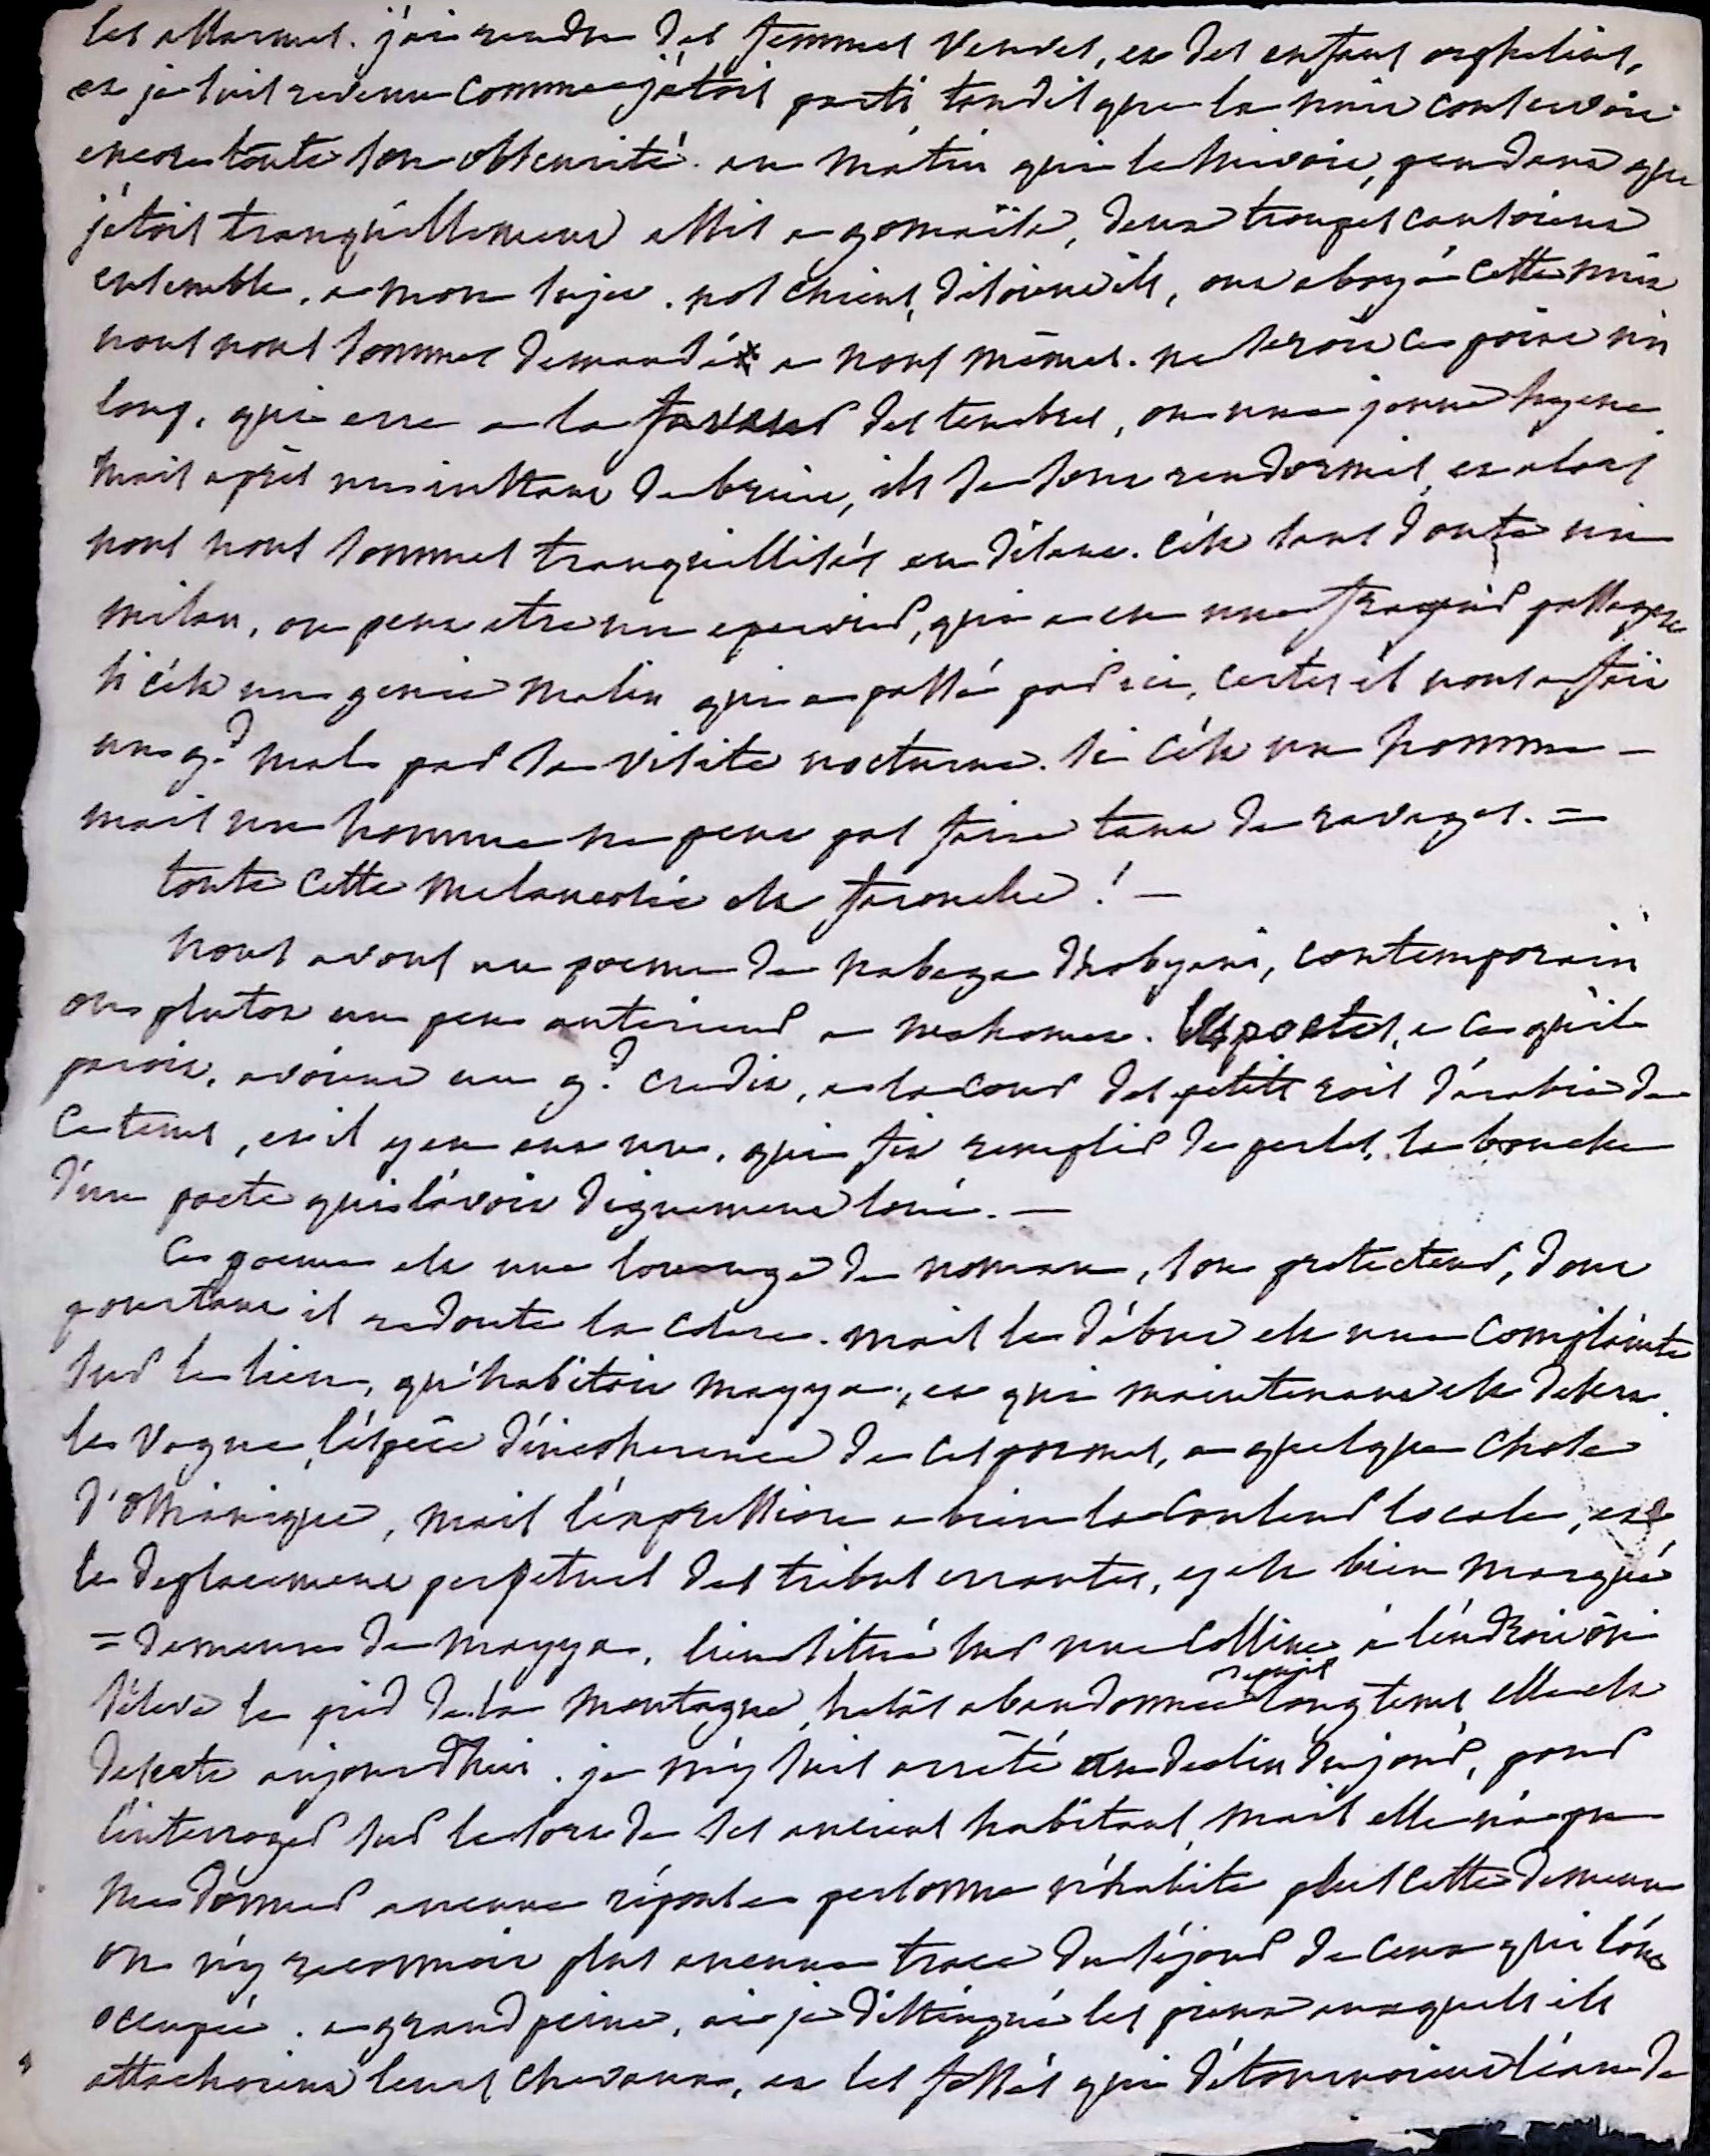 les allarmes. j'ai rendu des femmes veuves, et des enfans orphelins,
et je suis revenu comme j'étois parti tandis que la nuit conservoit
encore toute son obscurité. au matin qui la suivoit, pendant que
j'étois tranquillement assis a gomaïsa, deux troupes causoient
ensemble, a mon sujet. nos chiens, disoient ils, ont aboyé cette nuit
nous nous sommes demandé a nous mêmes. ne seroit ce point un
loup, qui erre a la faveur des tenebres, ou une jeune hyene.
mais après un instant de bruit, ils se sont rendormis, et alors
nous nous sommes tranquillisés en disant. c'est sans doute un
milan, ou peut etre un epervier, qui a eu une frayeur passagere
si c'est un genie malin qui a passé par ici, certes il nous a fait
un gd mal par sa visite nocturne. si c'est un homme –
mais un homme ne peut pas faire tant de ravages. =
toute cette melancolie est farouche! –
nous avons un poeme de nabega dhobyani, contemporain
ou plutot un peu anterieur a mahomet. les poetes, a ce qu'il
paroit, avoient un gd credit, a la cour des petits rois d'arabie de
ce tems, et il y en eut un, qui fit remplir de perles, la bouche
d'un poete qui l'avoit dignement loué. –
Ce poeme est une louange de noman, son protecteur, dont
pourtant il redoute la colere. mais le début est une complainte
sur le lieu, qu'habitoit mayya, et qui maintenant est desert.
le vague, l'espèce d'incoherence de ces poemes, a quelque chose
d'ossianique, mais l'expression a bien la couleur locale, et
le deplacement perpetuel des tribus errantes, y est bien marqué
= demeure de mayya, lieu situé sur une colline à l'endroit où
s'éleve le pied de la montagne, helas abandonnée depuis longtems elle est
deserte aujourdhui. je m'y suis arrêté au declin du jour, pour
l'interroger sur le sort de ses anciens habitans, mais elle n'a pu
me donner aucune réponse personne n'habite plus cette demeure
on n'y reconnoit plus aucune trace du séjour de ceux qui l'ont
occupée. a grand peine, ai je distingué les pieux auxquels ils
attachoient leurs chevaux, et les fossés qui détournoient l'eau de